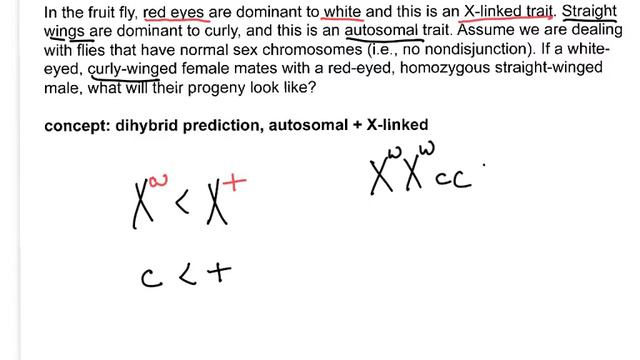 In the fruit fly, red eyes are dominant to white and this is an X-linked trait. Straight
wings are dominant to curly, and this is an autosomal trait. Assume we are dealing
with flies that have normal sex chromosomes (i.e., no nondisjunction). If a white-
eyed, curly-winged female mates with a red-eyed, homozygous straight-winged
male, what will their progeny look like?
concept: dihybrid prediction, autosomal + X-linked
X^w < X^+
X^w X^w cc
c < +